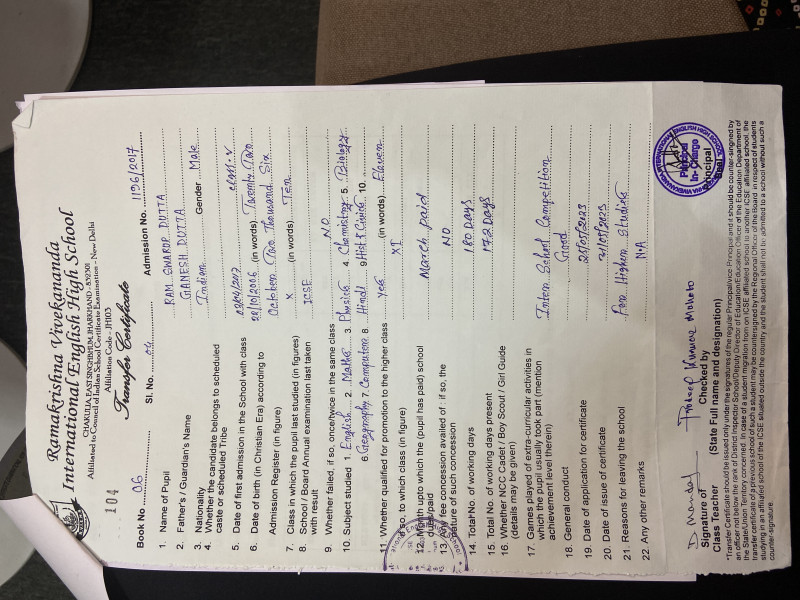 Ramakrishna Vivekananda
International English High School
CHAKULIA, EAST SINGHBHUM, JHARKHAND - 832301
Affiliated to Council of Indian School Certificate Examination - New Delhi
Affiliation Code - JH103
Transfer Certificate
104
Book No. 06 Sl. No. 04 Admission No. 1196/2017
1. Name of Pupil RAM SWARUP DUTTA
2. Father's / Guardian's Name GANESH DUTTA
3. Nationality Indian Gender Male
4. Whether the candidate belongs to scheduled
caste or scheduled Tribe
5. Date of first admission in the School with class class. V
6. Date of birth (in Christian Era) according to 28/10/2006 (in words)
Admission Register (in figure) October Two Thousand Six
7. Class in which the pupil last studied (in figures) X (in words) Ten
8. School / Board Annual examination last taken ICSE
with result
9. Whether failed, if so, once/twice in the same class NO
10. Subject studied 1. English 2. Maths 3. Physics 4. Chemistry 5. Biology
6. Geography 7. Computer 8. Hindi 9. Hist & Civics 10.
11. Whether qualified for promotion to the higher class yes
if so, to which class (in figure) XI (in words) Eleven
12. Month upto which the (pupil has paid) school March paid
dues/paid
13. Any fee concession availed of : if so, the NO
nature of such concession
14. Total No. of working days 180 DAYS
15. Total No. of working days present 172 DAYS
16. Whether NCC Cadet / Boy Scout / Girl Guide
(details may be given)
17. Games played of extra-curricular activities in Inter School Competition
which the pupil usually took part (mention
achievement level therein)
18. General conduct Good
19. Date of application for certificate 29/05/2023
20. Date of issue of certificate 31/05/2023
21. Reasons for leaving the school For Higher Studies
22. Any other remarks N.A
D. Mandal
Signature of
Class Teacher
Pradeep Kumar Mahato
Checked by
(State Full name and designation)
Principal
In-Charge
Principal
Seal
*Transfer Certificate should be issued only under the signatures of the regular Principal/vice Principal and it should be counter-singned by
an officer not below the rank of District Inspector School/Deputy Director of Education/Education Officer of the Education Department of
the State/Union Territory concerned. In case of a student migration from on ICSE affiliated school in another ICSE affiliated school, the
transfer certificate of a previous school of such a student may be countersigned by the Regional Office of the Board, in respect of students
studying in an affiliated school of the ICSE situated outside the country and the student shall not be admitted to a school without such a
counter-signature.